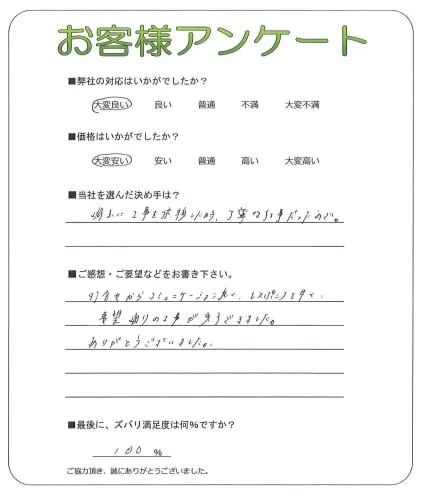 お客様アンケート
■弊社の対応はいかがでしたか?
大変良い 良い 普通 不満 大変不満
■価格はいかがでしたか?
大変安い 安い 普通 高い 大変高い
■当社を選んだ決め手は?
以前に工事を依頼した時、丁寧な仕事だったので。
■ご感想・ご要望などをお書き下さい。
打合せからコミュニケーション良く、レスポンスも早く、
要望通りの工事が完了できました。
ありがとうございました。
■最後に、ズバリ満足度は何%ですか?
100 %
ご協力頂き、誠にありがとうございました。